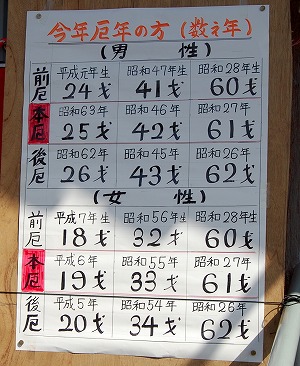 今年厄年の方(数え年)
(男 性)
前厄 平成元年生 昭和47年生 昭和28年生
24才 41才 60才
本厄 昭和63年 昭和46年 昭和27年
25才 42才 61才
後厄 昭和62年 昭和45年 昭和26年
26才 43才 62才
(女 性)
前厄 平成7年生 昭和56年生 昭和28年生
18才 32才 60才
本厄 平成6年 昭和55年 昭和27年
19才 33才 61才
後厄 平成5年 昭和54年 昭和26年
20才 34才 62才